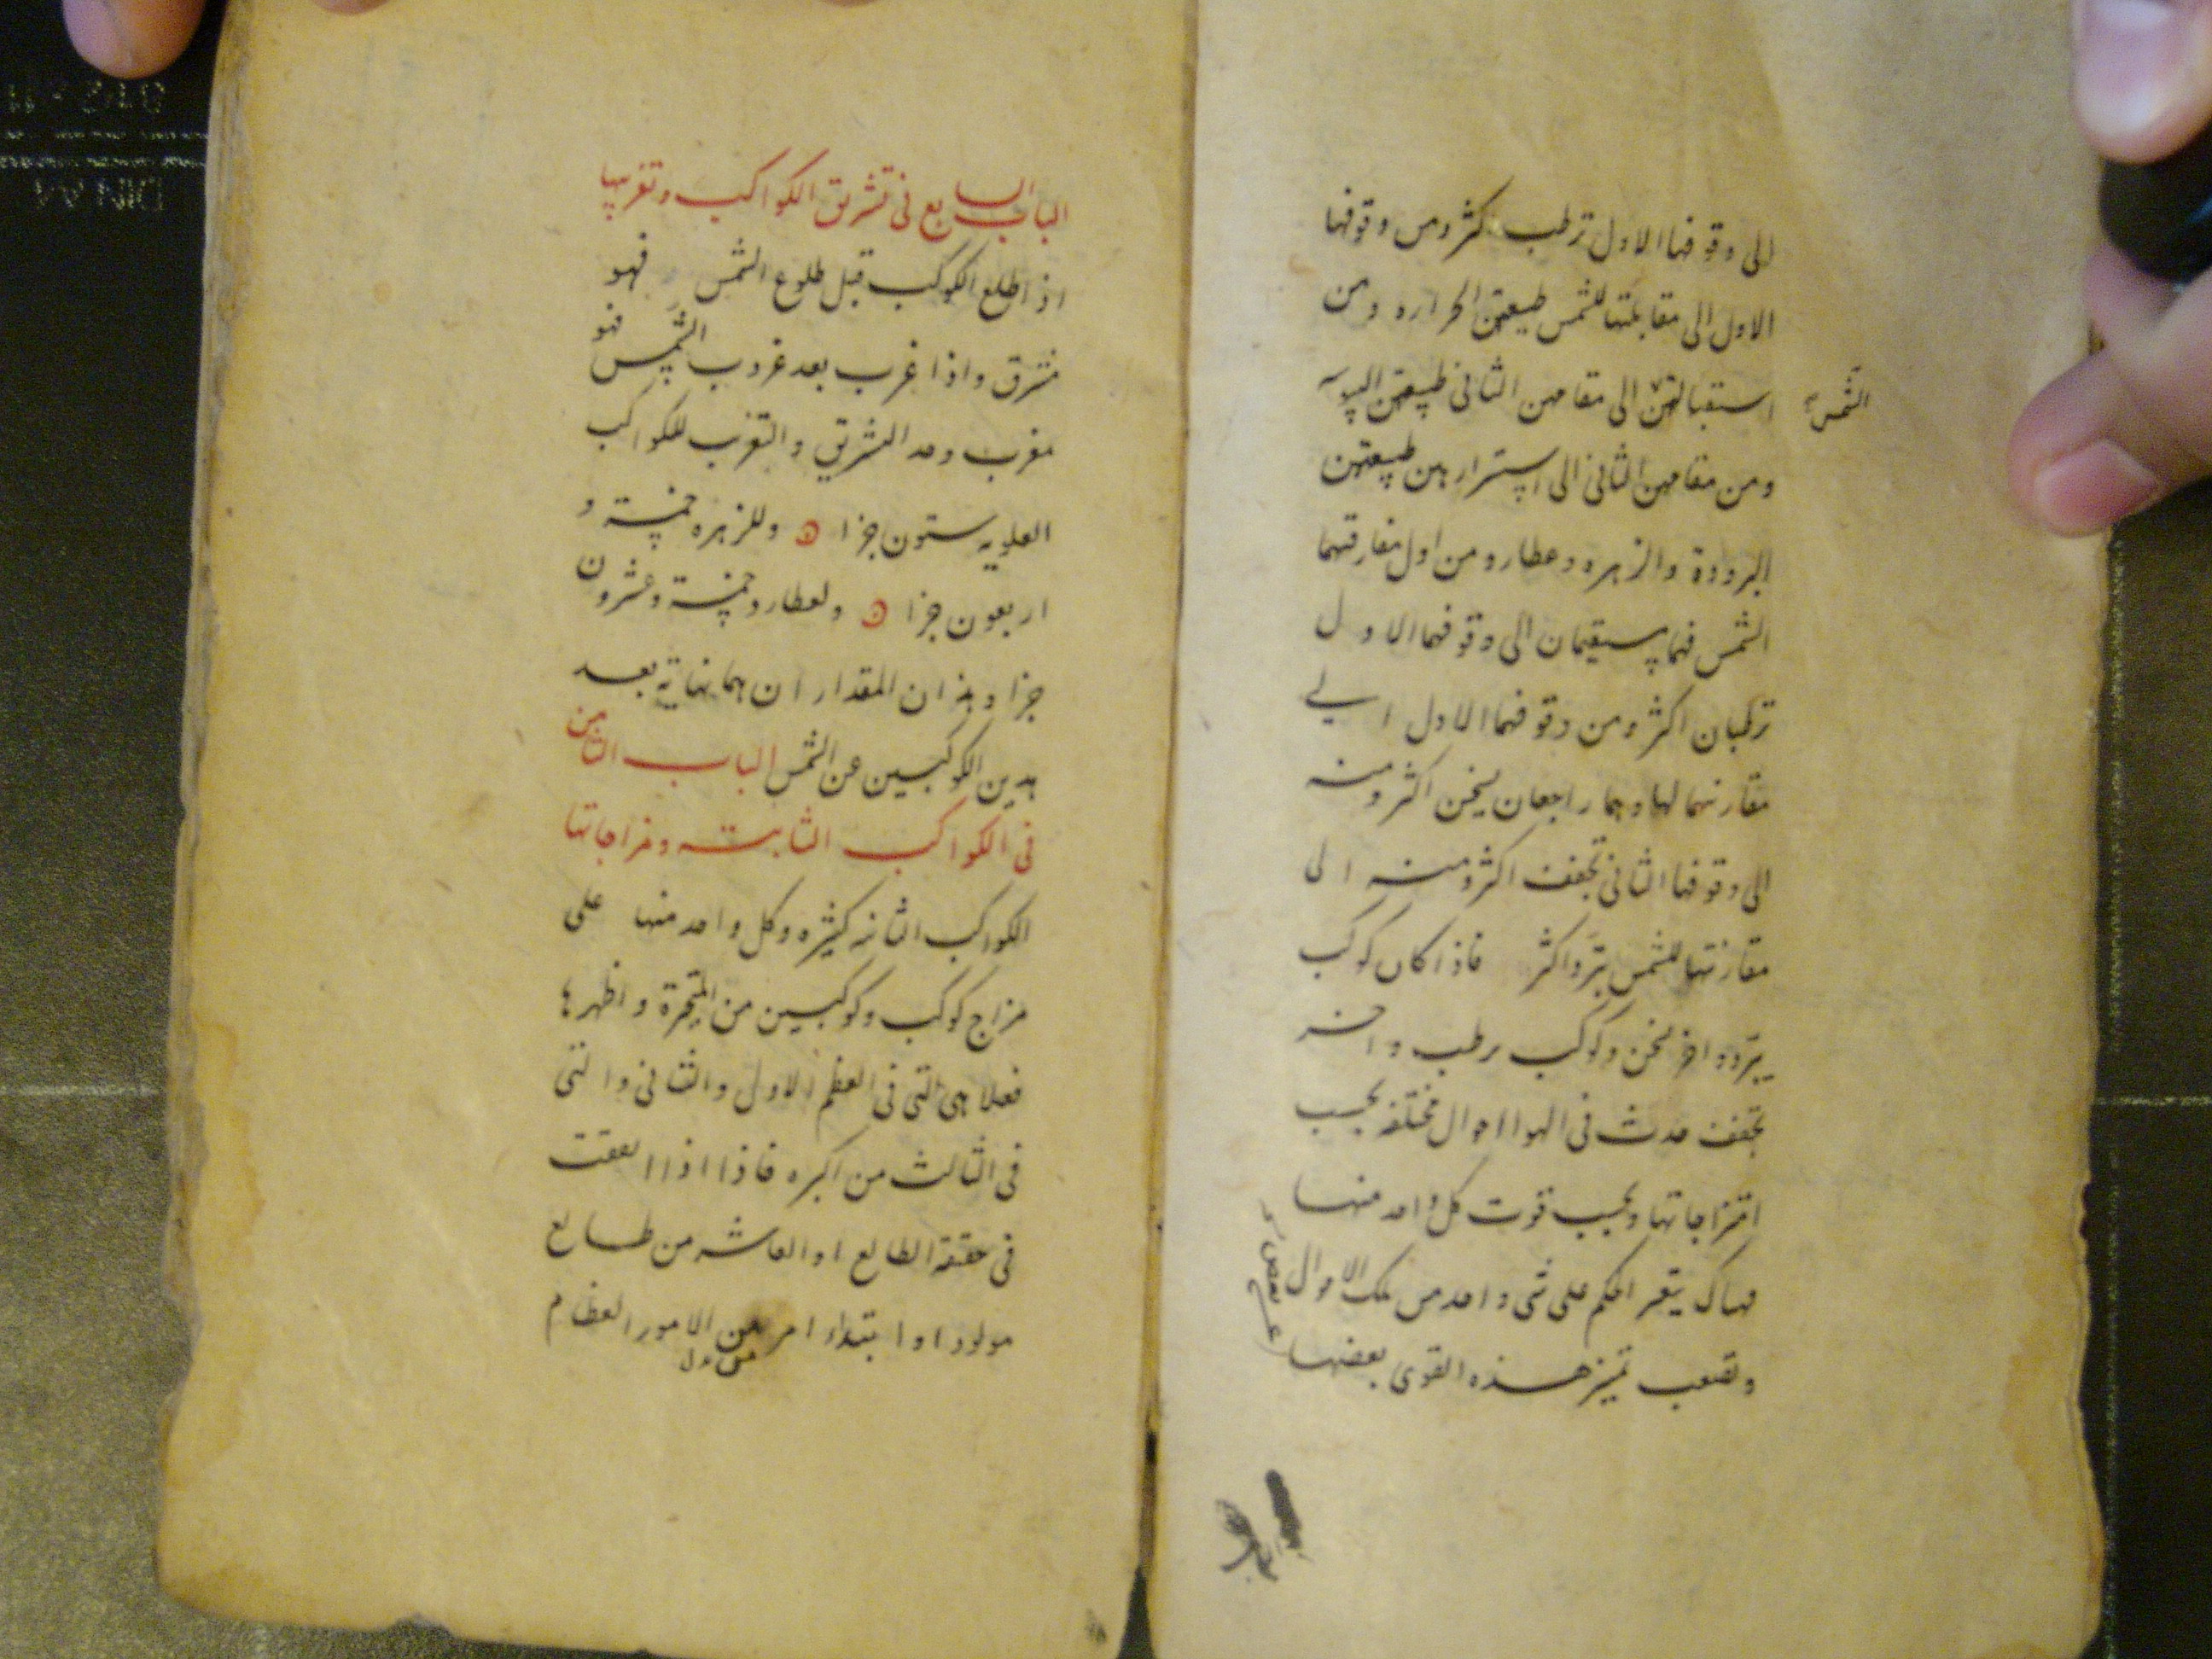 الى وقوفها الاول ترطب اكثر ومن وقوفها
الاول الى مقابلتها للشمس طبيعتهن الحراره ومن
استقبالهن الى مقامهن الثانى طبيعتهن اليبوسه
الشمس
ومن مقامهن الثانى الى استتارهن طبيعتهن
البرودة والزهره وعطارد من اول مفارقتهما
الشمس فهما يستقيمان الى وقوفهما الاول
ترطبان اكثر ومن وقوفهما الاول الى
مقارنتهما لها وهما راجعان يسخن اكثر ومنه
الى وقوفها الثانى تجفف اكثر ومنه الى
مقارنتها للشمس يبرد اكثر فاذا كان كوكب
يبرد واخر يسخن وكوكب يرطب واخر
يجفف حدث فى الهوا احوال مختلفه بحسب
امتزاجاتها وبحسب قوت كل واحد منها
فهناك يتعسر الحكم على شى واحد من تلك الاحوال
وتصعب تميز هذه القوى بعضها
عن بعض
الباب السابع فى تشريق الكواكب وتغريبها
اذا طلع الكوكب قبل طلوع الشمس فهو
مشرق واذا غرب بعد غروب الشمس فهو
مغرب وحد التشريق والتغرب للكواكب
العلويه ستون جزا وللزهره خمسة و
اربعون جزا ولعطارد خمسة وعشرون
جزا وهذان المقداران هما نهاية بعد
هذين الكوكبين عن الشمس الباب الثامن
فى الكواكب الثابته ومزاجاتها
الكواكب الثابته كثيره وكل واحد منها على
مزاج كوكب وكوكبين من المتحيرة واظهرها
فعلا هى التى فى العظم الاول والثانى والتى
فى الثالث من اكبره فاذا اذا اتفقت
فى حقيقة الطالع او العاشر من طالع
مولود او ابتداء امر من الامور العظام